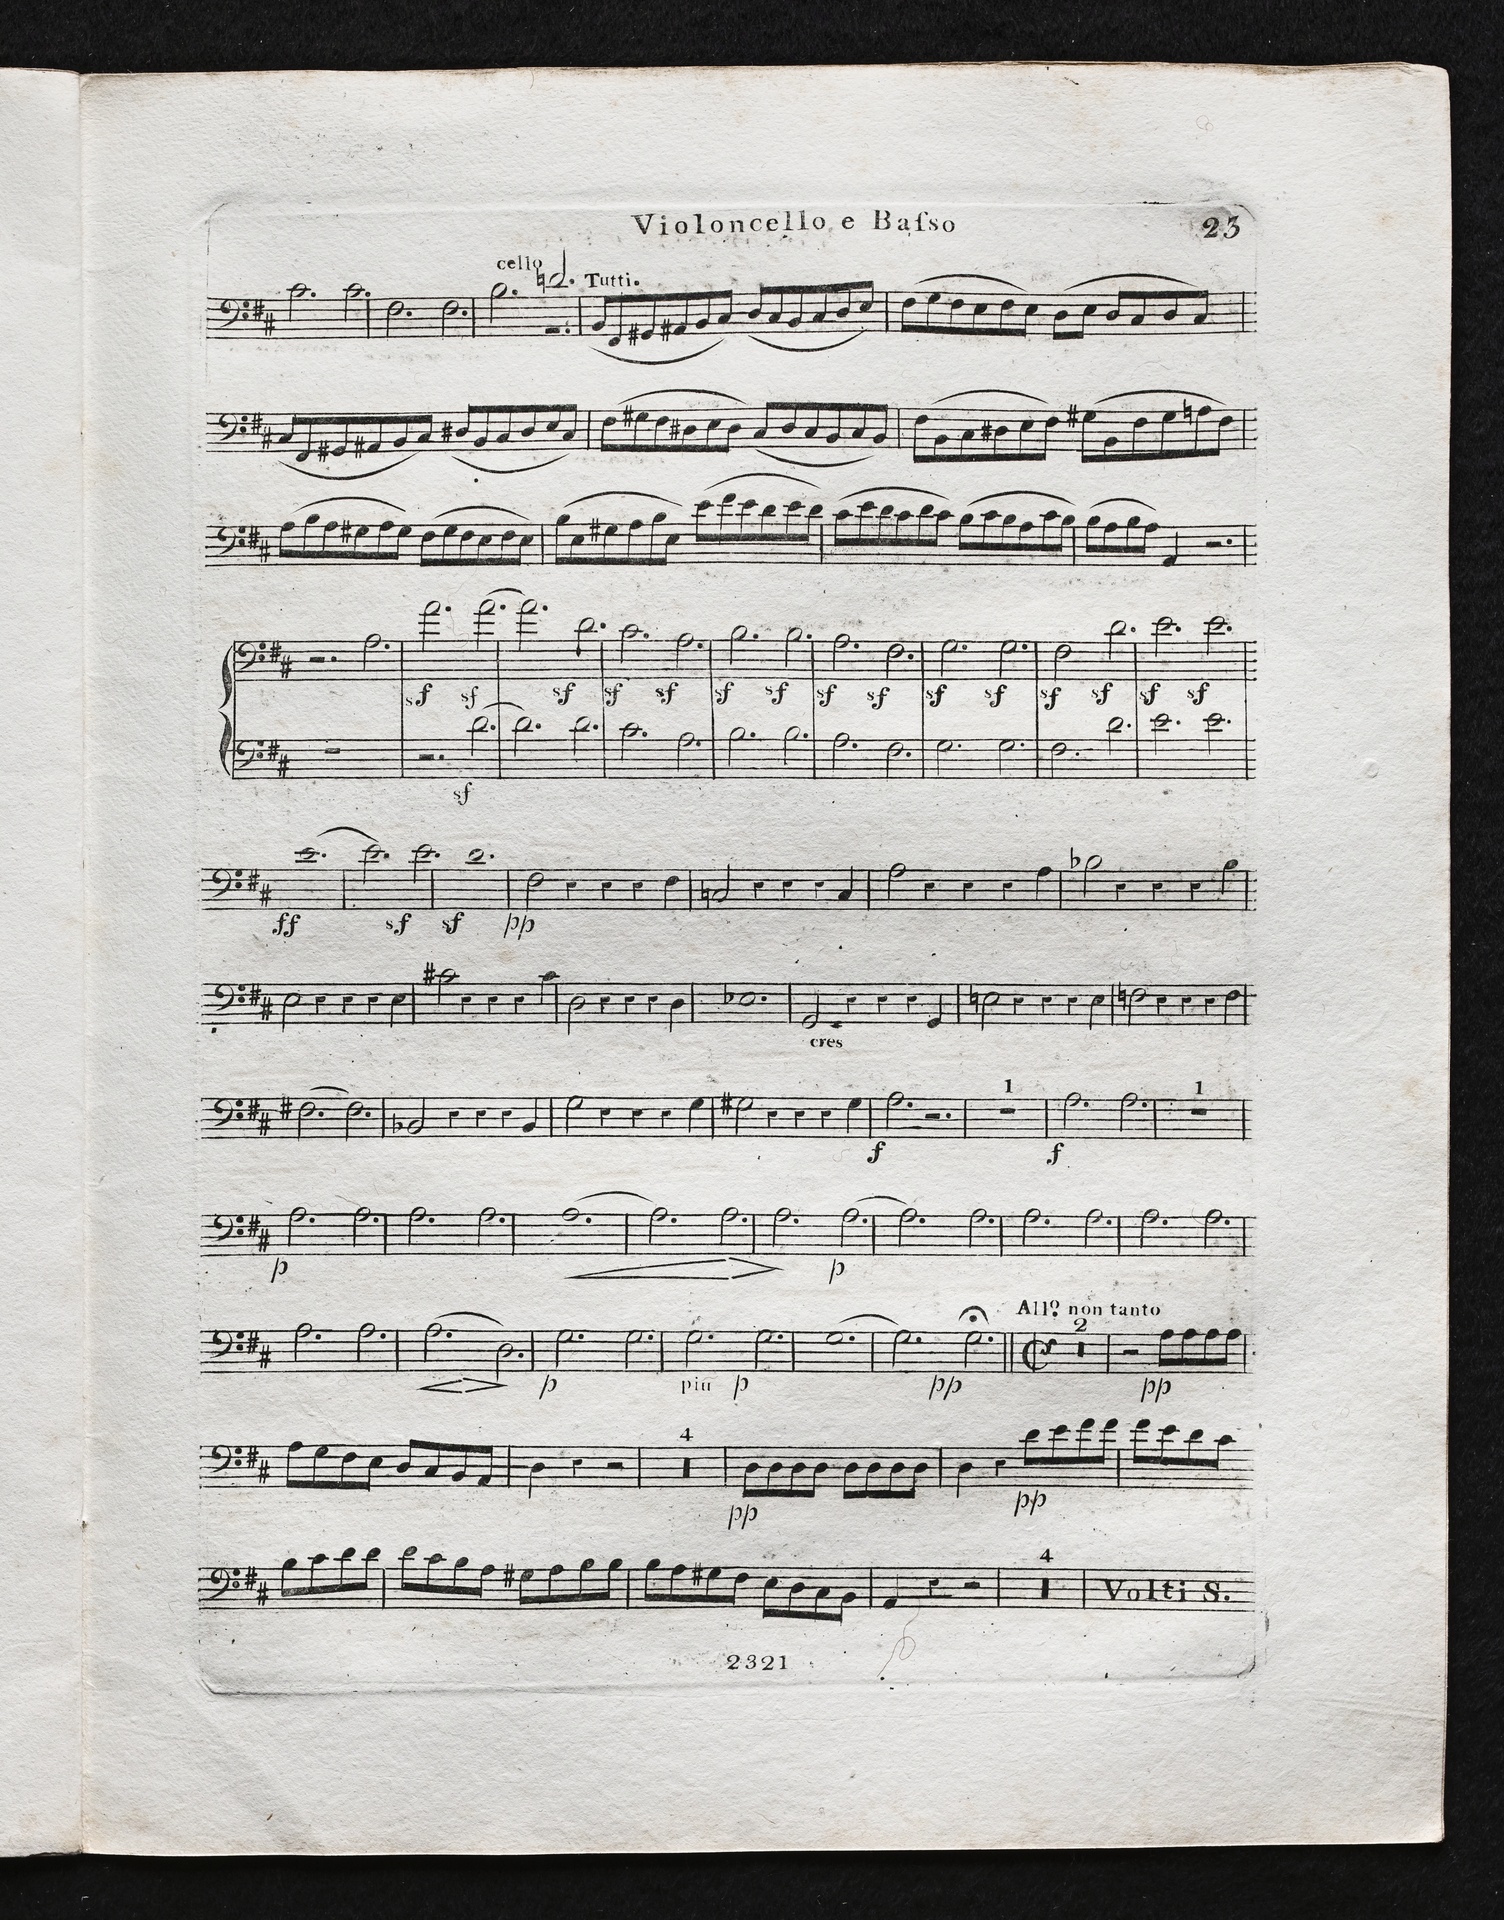 Violoncello e Baſso
23
cello
Tutti.
sf sf sf sf sf sf sf sf sf sf sf sf sf sf sf
sf
ff sf sf pp
cres
1 1
f f
p p
Allº. non tanto
2
p piu p pp pp
4
pp pp
4
Volti S.
2321